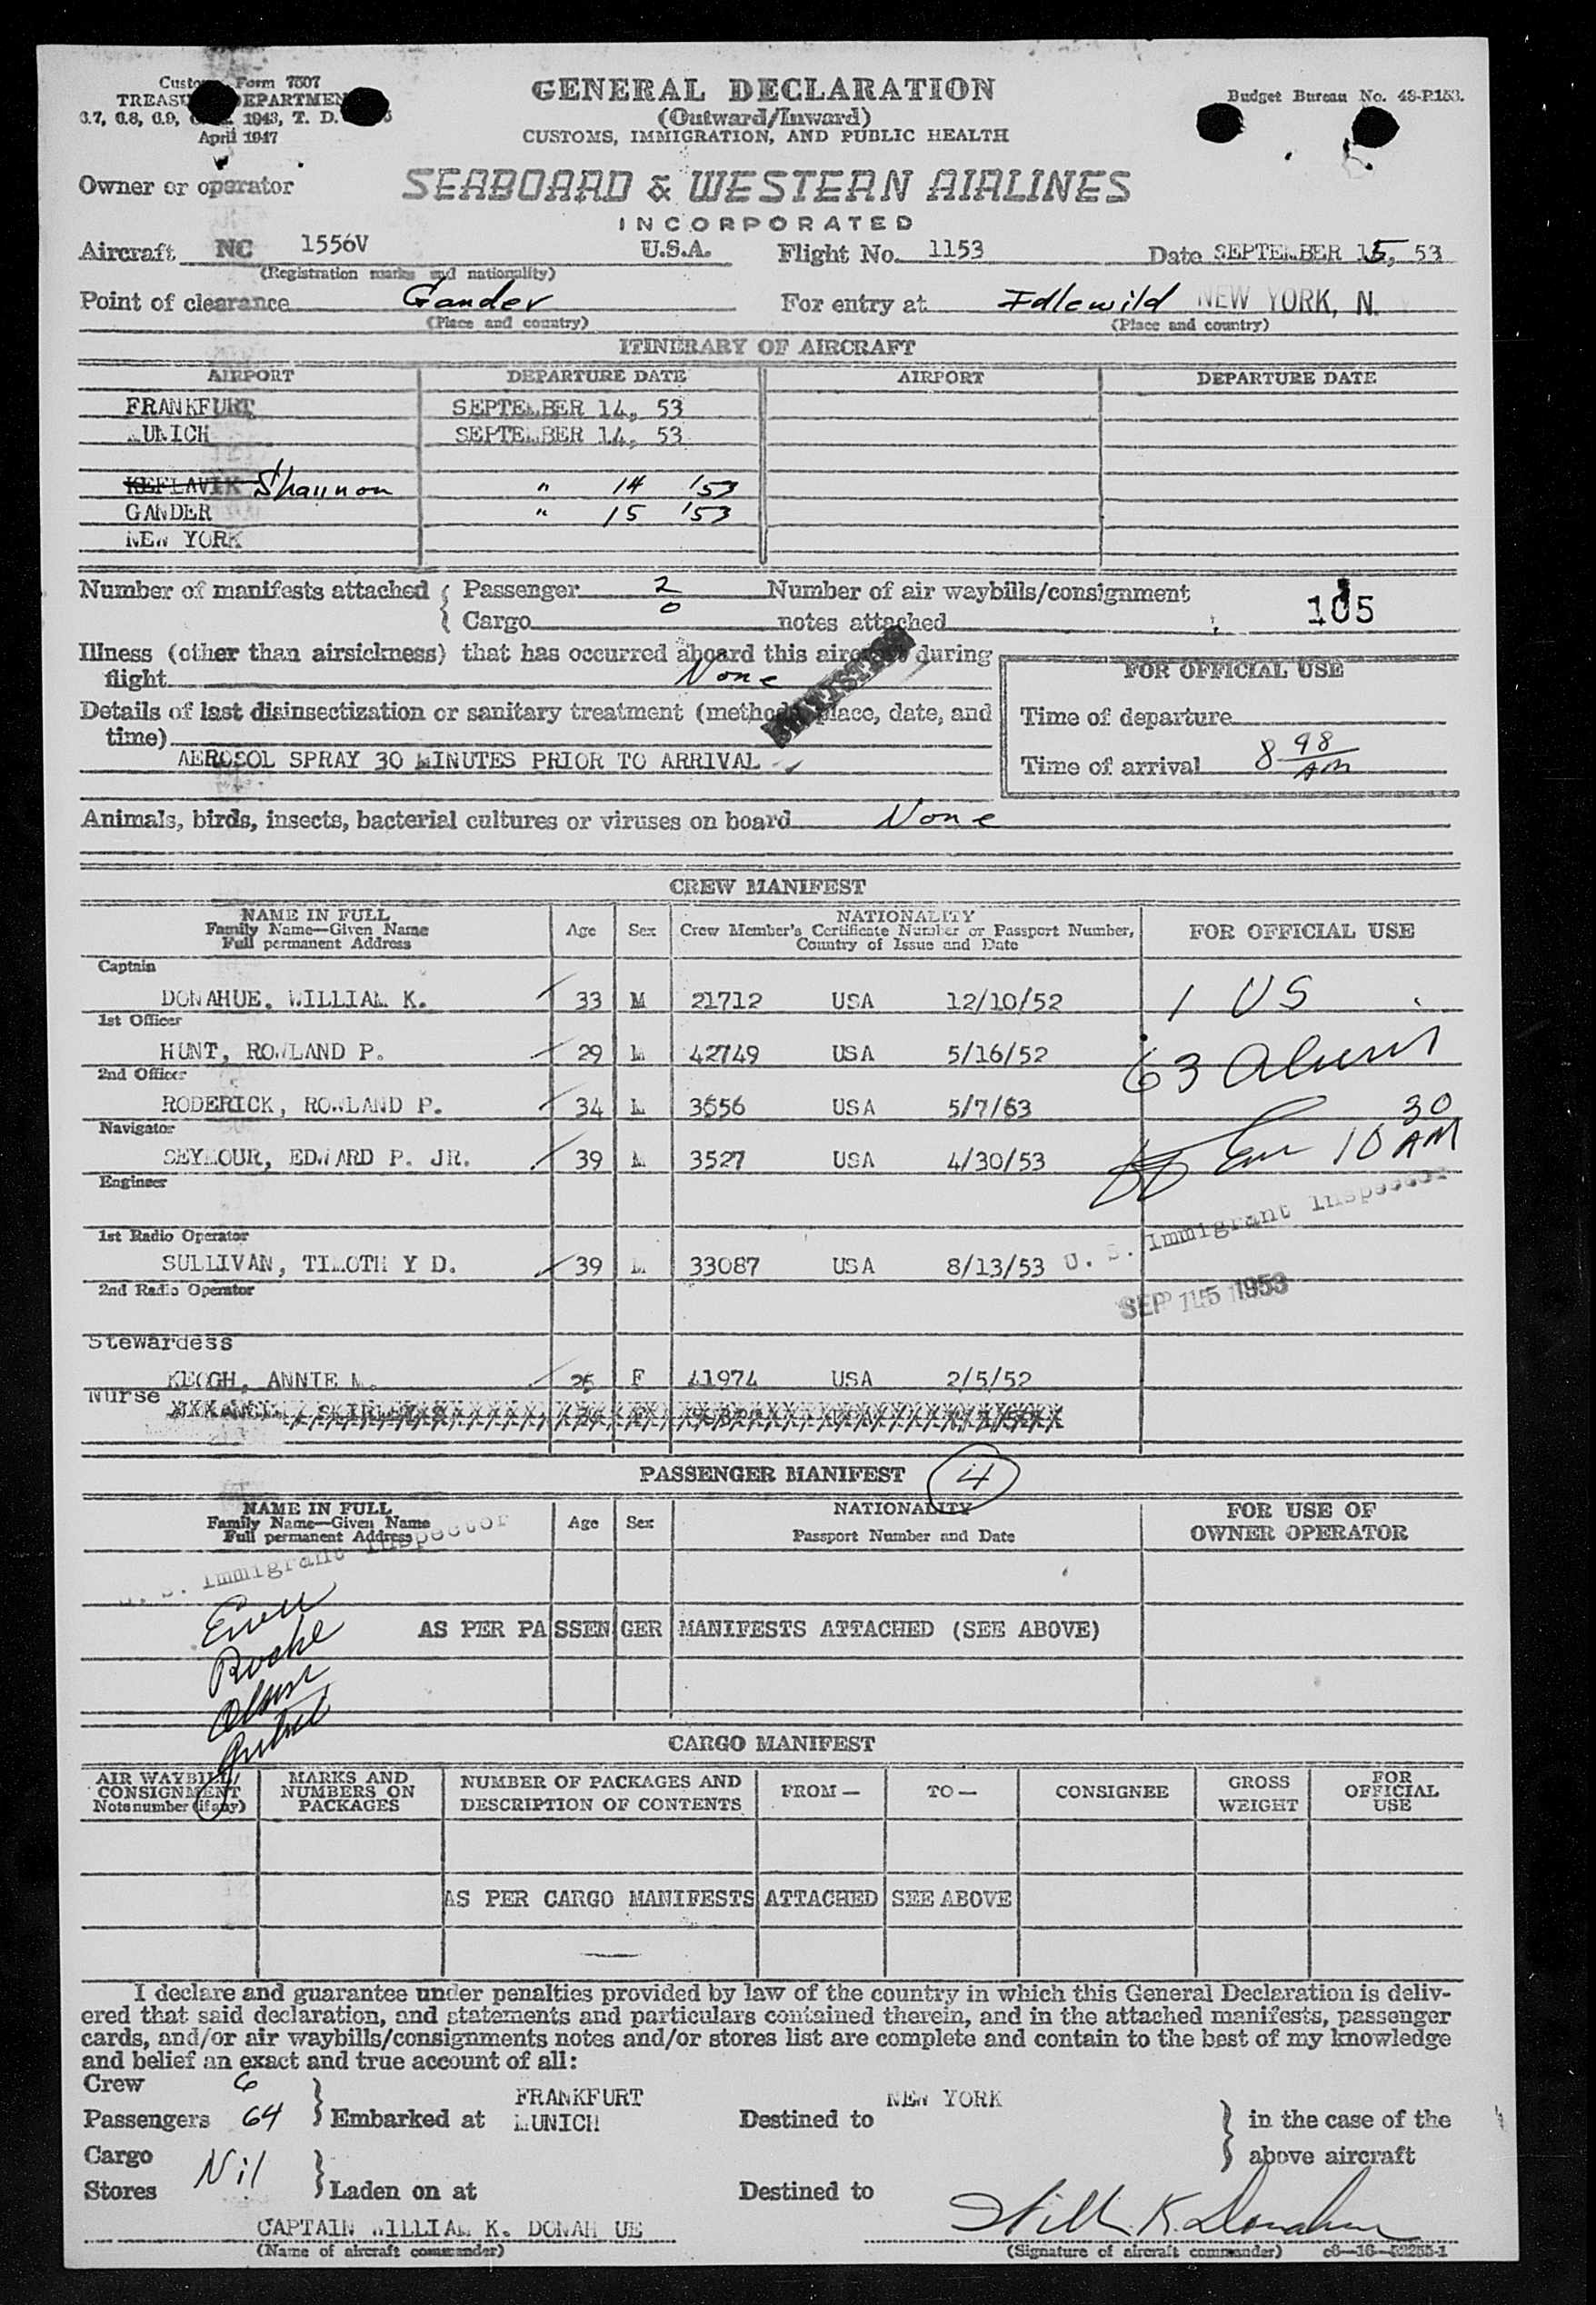 Customs Form 7507
TREASURY DEPARTMENT
6.7, 6.8, 6.9, 1943, T. D.
April 1947
GENERAL DECLARATION
(Outward/Inward)
CUSTOMS, IMMIGRATION, AND PUBLIC HEALTH
Budget Bureau No. 48-R153.
Owner or operator SEABOARD & WESTERN AIRLINES
INCORPORATED
Aircraft NC 1556V U.S.A. Flight No. 1153 Date SEPTEMBER 15, 53
(Registration marks and nationality)
Point of clearance Gander For entry at Idlewild NEW YORK, N.
(Place and country) (Place and country)
ITINERARY OF AIRCRAFT
AIRPORT DEPARTURE DATE AIRPORT DEPARTURE DATE
FRANKFURT SEPTEMBER 14, 53
MUNICH SEPTEMBER 14, 53
KEFLAVIK Shannon " 14 '53
GANDER " 15 '53
NEW YORK
Number of manifests attached { Passenger 2 Number of air waybills/consignment
Cargo 0 notes attached 105
Illness (other than airsickness) that has occurred aboard this aircraft during
flight None
STATISTICS
FOR OFFICIAL USE
Details of last disinsectization or sanitary treatment (method, place, date, and
time)
AEROSOL SPRAY 30 MINUTES PRIOR TO ARRIVAL
Time of departure
Time of arrival 8 48 AM
Animals, birds, insects, bacterial cultures or viruses on board None
CREW MANIFEST
NAME IN FULL
Family Name—Given Name
Full permanent Address
Age Sex
NATIONALITY
Crew Member's Certificate Number or Passport Number,
Country of Issue and Date
FOR OFFICIAL USE
Captain
DONAHUE, WILLIAM K. 33 M 21712 USA 12/10/52 1 US
1st Officer
HUNT, ROWLAND P. 29 M 42749 USA 5/16/52 63 Aliens
2nd Officer
RODERICK, ROWLAND P. 34 M 3656 USA 5/7/53
Navigator
SEYMOUR, EDWARD P. JR. 39 M 3527 USA 4/30/53 10 30 AM
Engineer
U. S. Immigrant Inspector
1st Radio Operator
SULLIVAN, TIMOTH Y D. 39 M 33087 USA 8/13/53
2nd Radio Operator
SEP 15 1953
Stewardess
KEOGH, ANNIE M. 25 F 41974 USA 2/5/52
Nurse
PASSENGER MANIFEST 4
NAME IN FULL
Family Name—Given Name
Full permanent Address
Age Sex
NATIONALITY
Passport Number and Date
FOR USE OF
OWNER OPERATOR
U. S. Immigrant Inspector
Roche
AS PER PASSENGER MANIFESTS ATTACHED (SEE ABOVE)
CARGO MANIFEST
AIR WAYBILL/
CONSIGNMENT
Note number (if any)
MARKS AND
NUMBERS ON
PACKAGES
NUMBER OF PACKAGES AND
DESCRIPTION OF CONTENTS
FROM—
TO—
CONSIGNEE
GROSS
WEIGHT
FOR
OFFICIAL
USE
AS PER CARGO MANIFESTS ATTACHED SEE ABOVE
I declare and guarantee under penalties provided by law of the country in which this General Declaration is deliv-
ered that said declaration, and statements and particulars contained therein, and in the attached manifests, passenger
cards, and/or air waybills/consignments notes and/or stores list are complete and contain to the best of my knowledge
and belief an exact and true account of all:
Crew 6
Passengers 64 } Embarked at FRANKFURT MUNICH Destined to NEW YORK } in the case of the
Cargo above aircraft
Stores Nil } Laden on at Destined to
CAPTAIN WILLIAM K. DONAH UE Willi. K. Donahue
(Name of aircraft commander) (Signature of aircraft commander) c6—16—52255-1